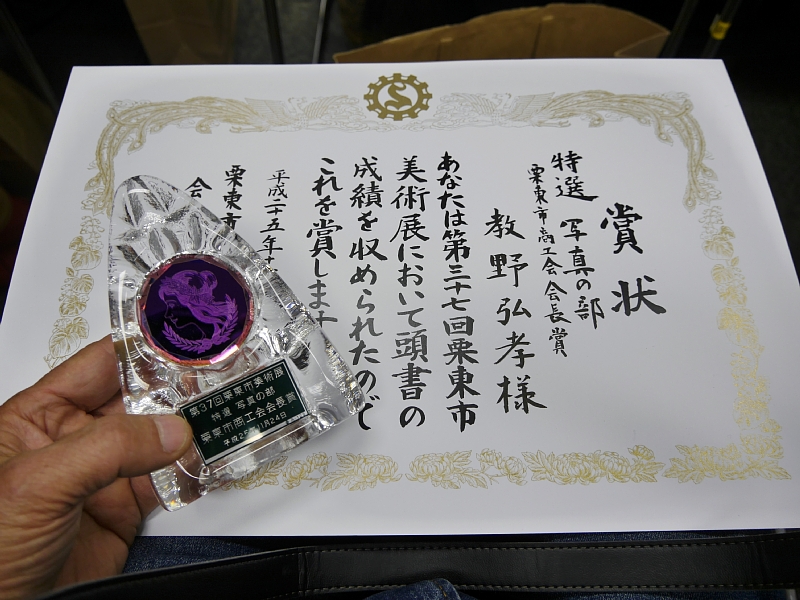 賞状
特選 写真の部
栗東市商工会会長賞
教野弘孝様
あなたは第三十七回栗東市
美術展において頭書の
成績を収められたので
これを賞します
平成二十五年十
栗東市
会
第37回栗東市美術展
特選 写真の部
栗東市商工会会長賞
平成25年11月24日